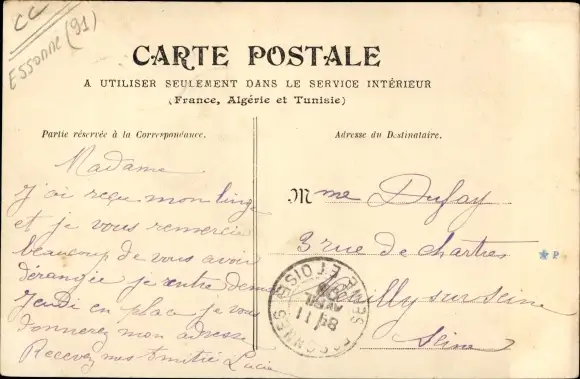 CC
ESSONNE (91)
CARTE POSTALE
A UTILISER SEULEMENT DANS LE SERVICE INTÉRIEUR
(France, Algérie et Tunisie)
Partie réservée à la Correspondance.
Adresse du Destinataire.
Madame
J'ai reçu mon linge
et je vous remercie
beaucoup de vous avoir
dérangée je entre
Jeudi en place je vous
donnerez mon adresse
Recevez mes Amitié Lucie
Mme Dufay
3 rue de chartres
Neuilly sur seine
Seine
ESSONNES SEINE ET OISE
11
P